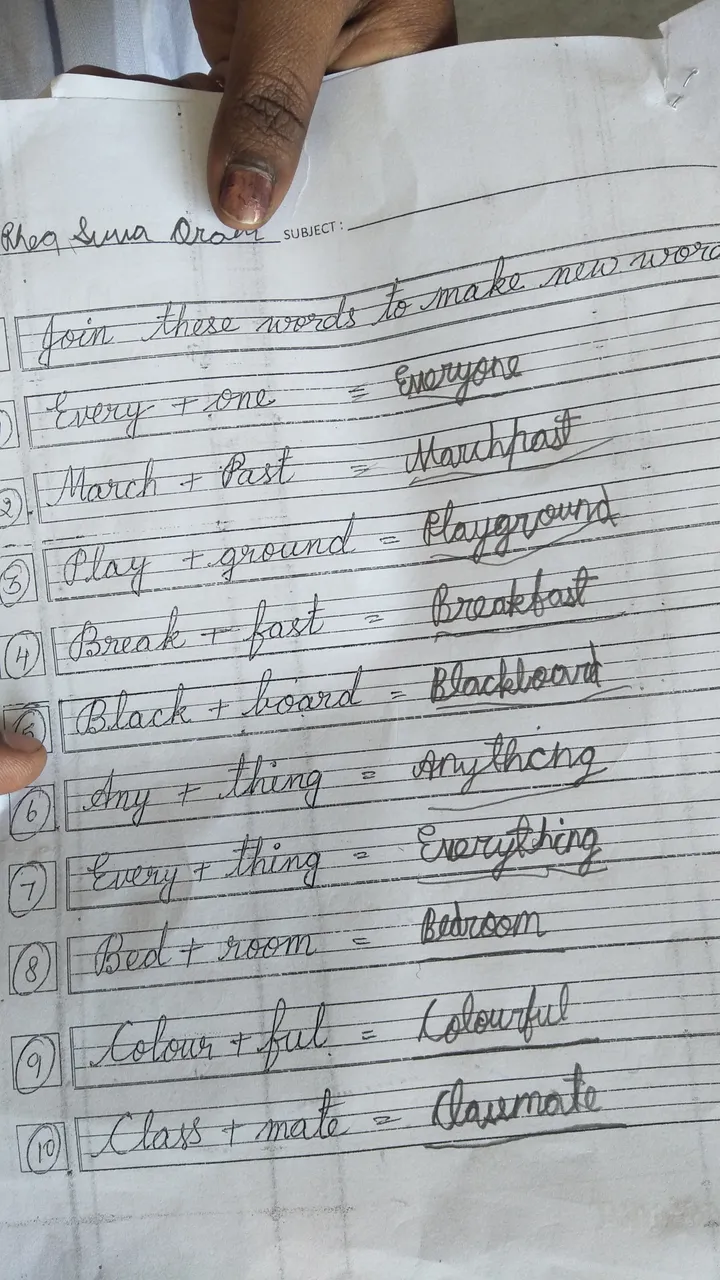 Rhea Suna Oram SUBJECT:
Join these words to make new word
Every + one = Everyone
2 March + Past = Marchpast
3 Play + ground = Playground
4 Break + fast = Breakfast
5 Black + board = Blackboard
6 Any + thing = Anything
7 Every + thing = Everything
8 Bed + room = Bedroom
9 Colour + ful = Colourful
10 Class + mate = Classmate